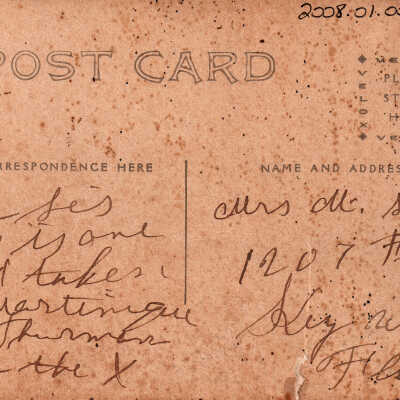 2008.01.0
POST CARD
RRESPONDENCE HERE
NAME AND ADDRES
PL
ST
H
Sis
is one
taken
Martinique
Thurman
the X
Mrs M. S
1207 F
Key W
Fla